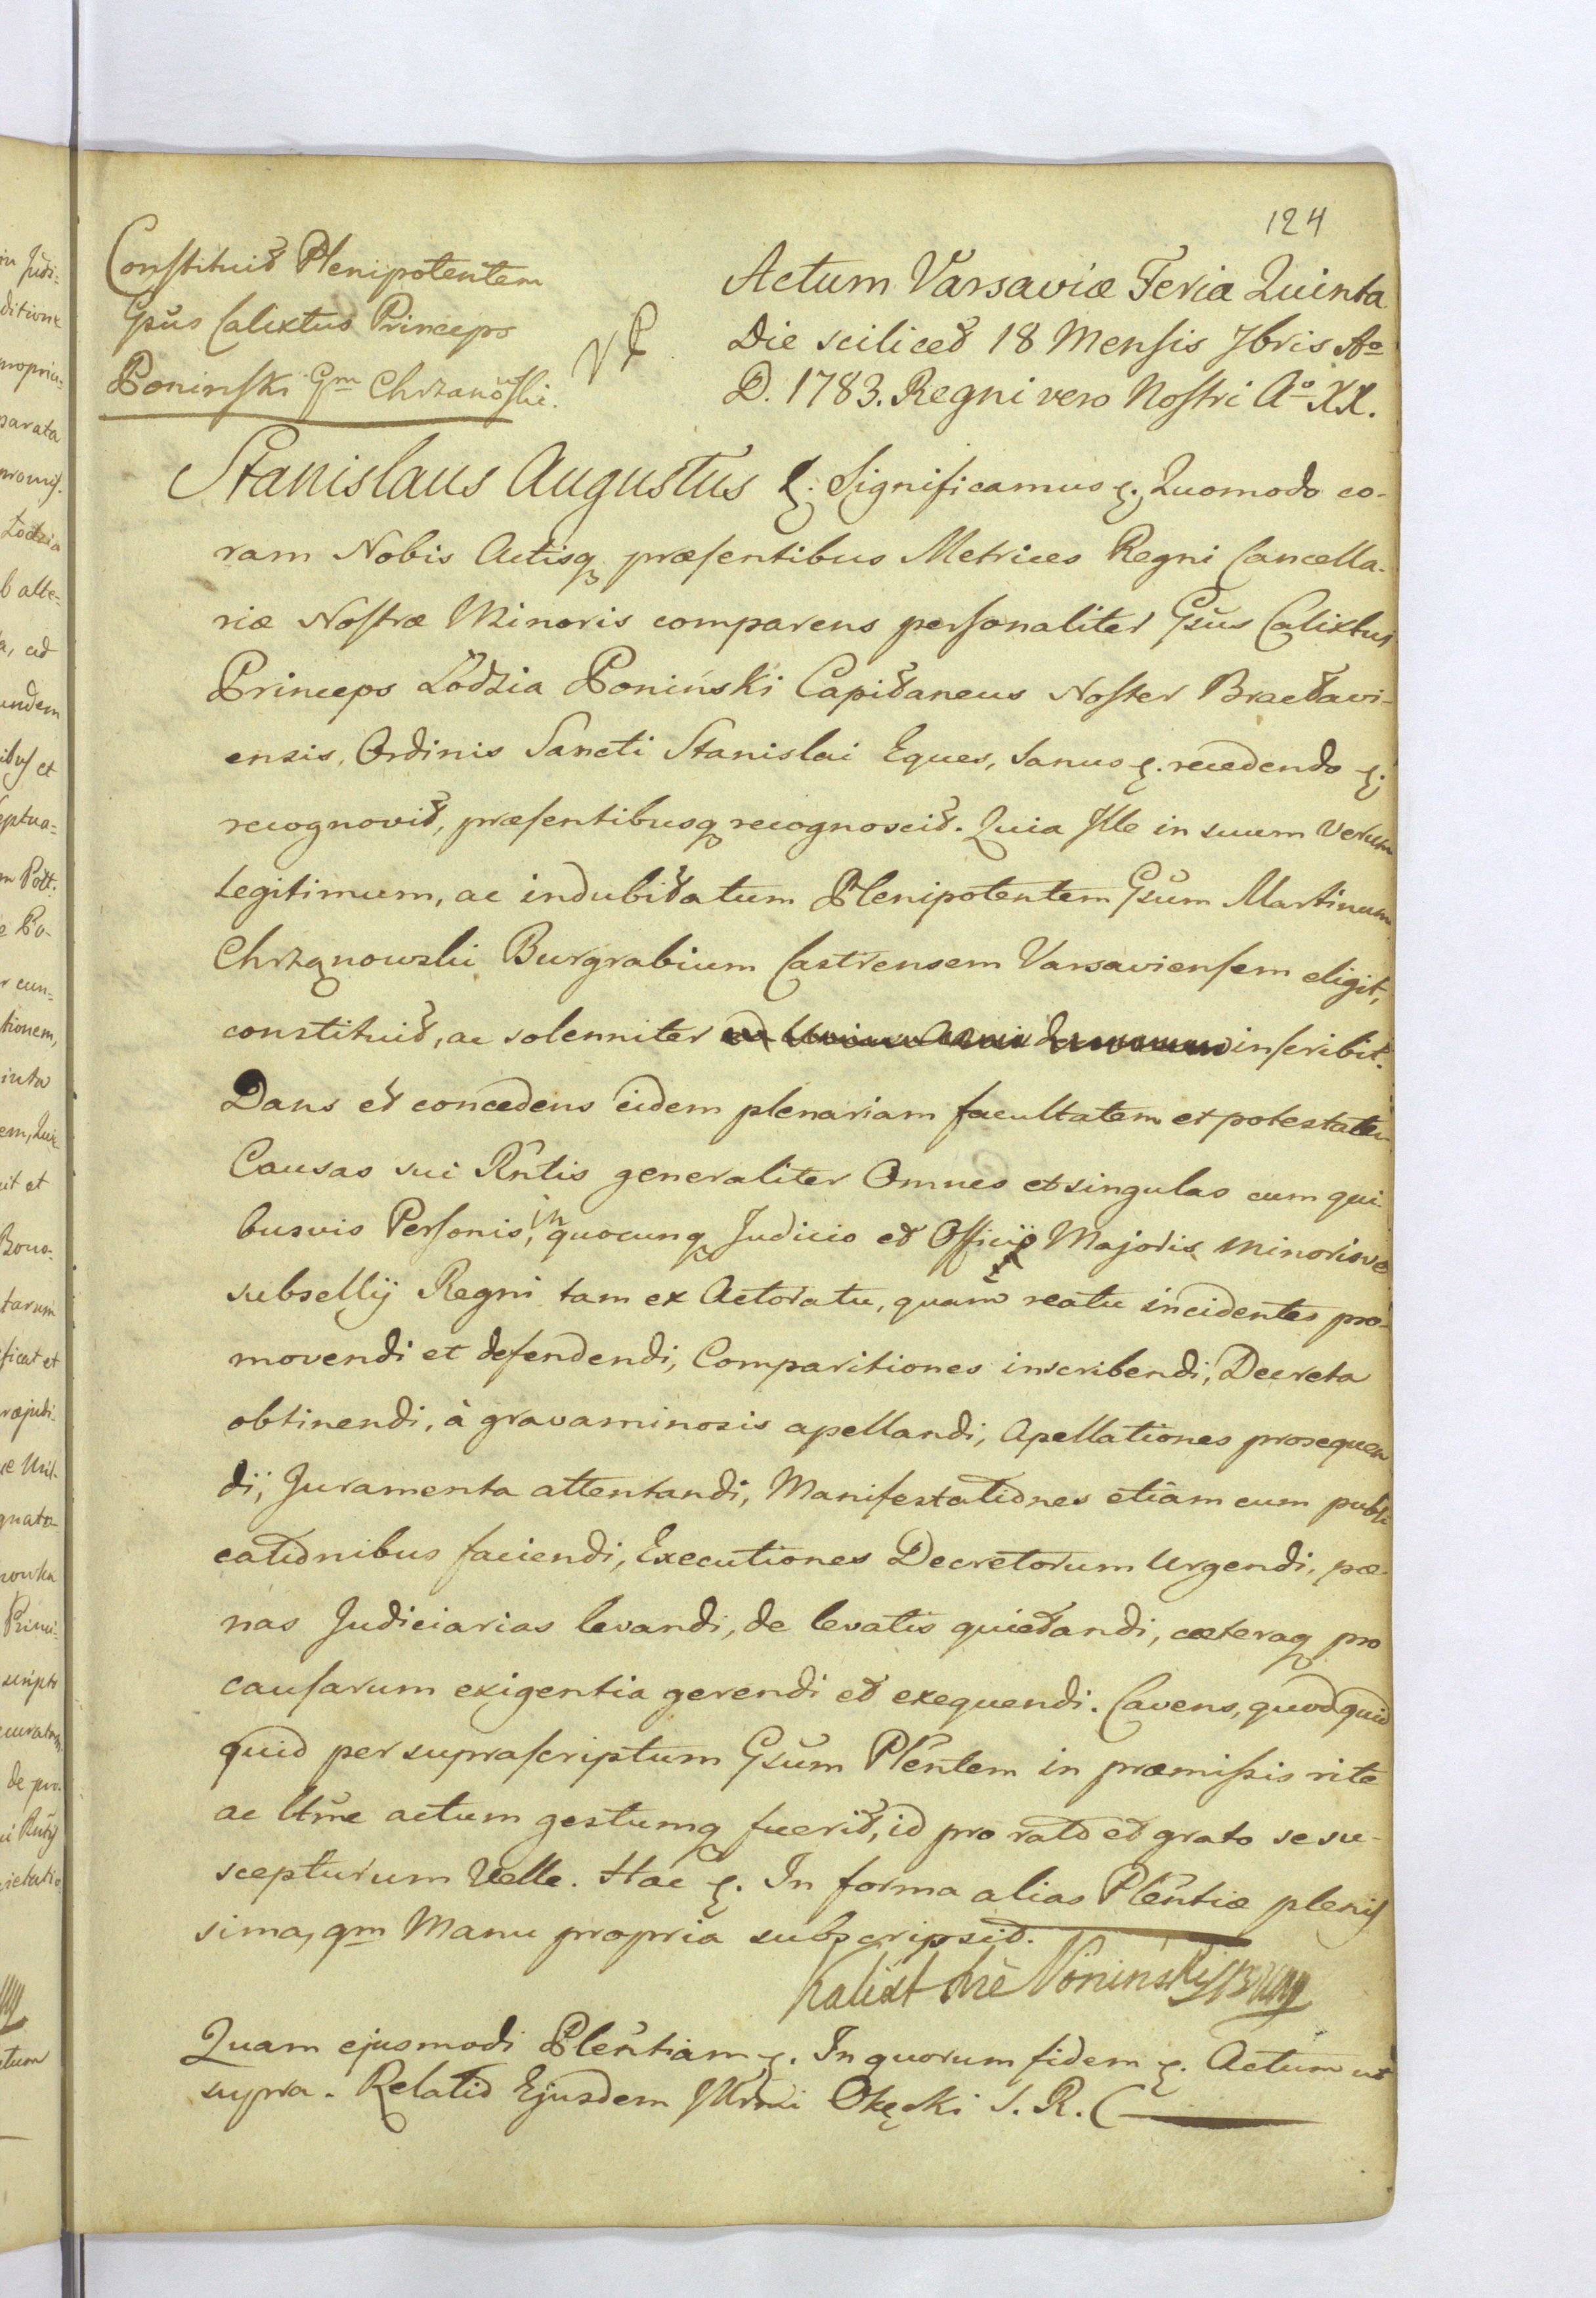 124
Constituit Plenipotentem
Gsus Calixtus Princeps
Poninski Gm Chrzanowski.
Actum Varsaviæ Feria Quinta
Die scilicet 18 Mensis 7bris Ao
D. 1783. Regni vero Nostri Ao XX.
Stanislaus Augustus &. Significamus &. Quomodo co-
ram Nobis Actisq præsentibus Metrices Regni Cancella-
riæ Nostræ Minoris comparens personaliter Gsus Calixtus
Princeps Łodzia Poniński Capitaneus Noster Bractavi-
ensis, Ordinis Sancti Stanislai Eques, Sanus &. recedendo &.
recognovit, præsentibusq recognoscit. Quia Ille in suum Verum
Legitimum, ac indubitatum Plenipotentem Gsum Martinum
Chrzanowski Burgrabium Castrensem Varsaviensem eligit,
constituit, ac solenniter inscribit.
Dans et concedens eidem plenariam facultatem et potestatem
Causas sui Rntis generaliter Omnes et singulas cum qui-
busvis Personis, in quocunq Judicio et Officio Majoris Minorisve
subsellij Regni tam ex Actoratu, quam reatu incidentes pro-
movendi et defendendi, Comparitiones inscribendi, Decreta
obtinendi, à gravaminosis apellandi, Apellationes prosequen
di, Juramenta attentandi, Manifestationes etiam cum publi
cationibus faciendi, Executiones Decretorum Urgendi, pæ-
nas Judiciarias levandi, de levatis quietandi, cæteraq pro
causarum exigentia gerendi et exequendi. Cavens, quod quid
quid per suprascriptum Gsum Plentem in præmissis rite
ac ltme actum gestumq fuerit, id pro rato et grato se su-
scepturum Velle. Hac &. In forma alias Plentiæ plenis
sima, qm Manu propria subscripsit.
Kalixt Xże Poninski
Quam ejusmodi Plentiam &. In quorum fidem &. Actum ut
supra. Relatio Ejusdem Okęcki S. R.